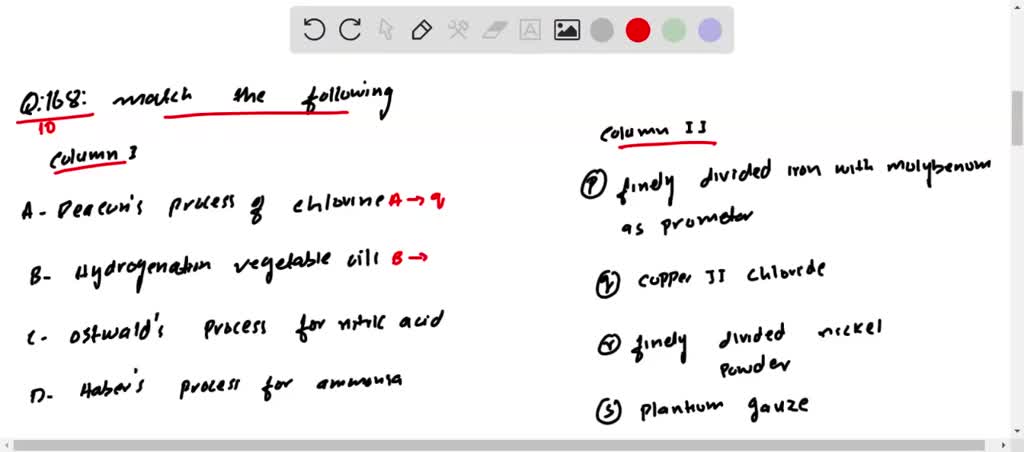 Q:168: match the following
10
Column I
A- Deacon's process of chlorine A → q
B- Hydrogenation vegetable oils B →
C- Ostwald's process for nitric acid
D- Haber's process for ammonia
Column II
(p) finely divided iron with molybenum
as promoter
(q) copper II chloride
(r) finely divided nickel
powder
(s) plantium gauze